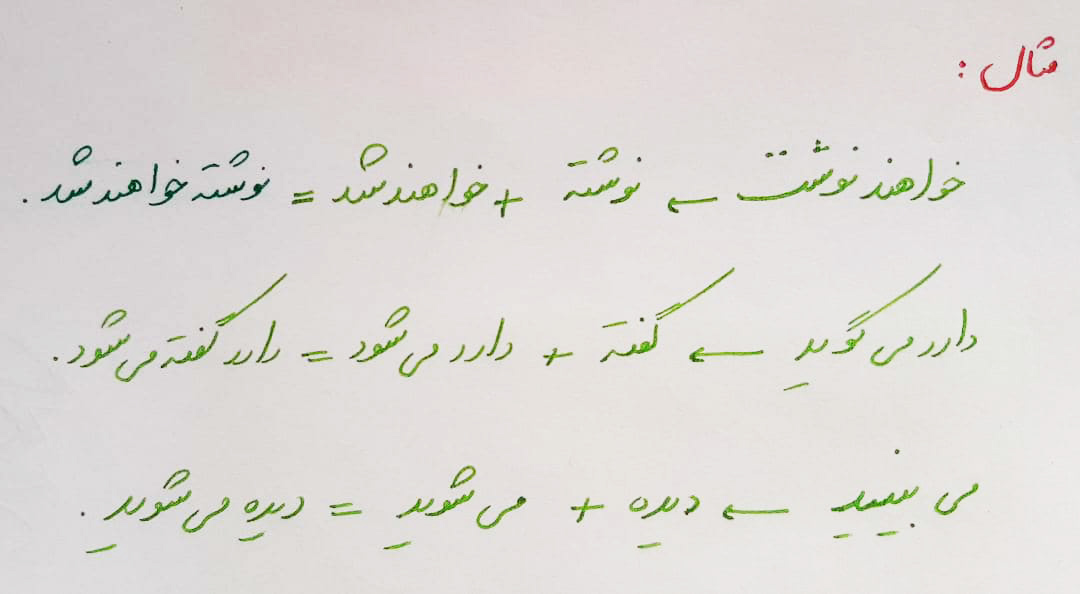 مثال :
خواهند نوشت ← نوشته + خواهند شد = نوشته خواهند شد .
دارد می گوید ← گفته + دارد می شود = دارد گفته می شود .
می بینید ← دیده + می شوید = دیده می شوید .